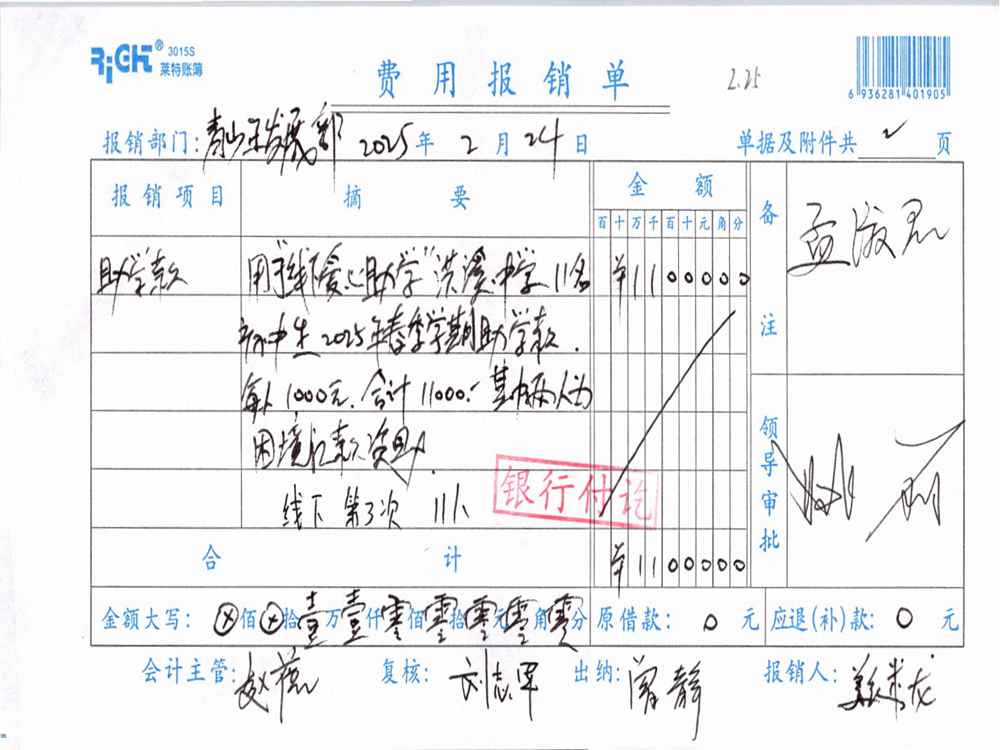 RiCH® 3015S
莱特账簿
费用报销单
2.25
6 936281 401905
报销部门：青少年发展部 2025年2月24日 单据及附件共 2 页
报销项目 摘要 金额 备注
百十万千百十元角分
助学款 用于"线下爱心助学"洪溪中学11名 ¥1100000
初中生2025年春季学期助学款.
每人1000元.合计11000.- 其中两人为
困境 款资助.
线下 第3次 11人
银行付讫
领导审批
合计 ¥1100000
金额大写：ⓧ佰ⓧ拾壹万壹仟零佰零拾零元零角零分 原借款：0元 应退(补)款：0元
会计主管：赵 复核：刘志军 出纳：闻静 报销人：龙